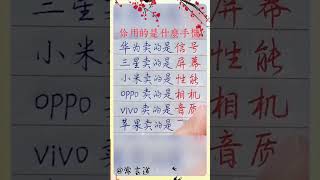 你用的是什麼手機
华为卖的是信号
三星卖的是屏幕
小米卖的是性能
oppo卖的是相机
vivo卖的是音质
苹果卖的是